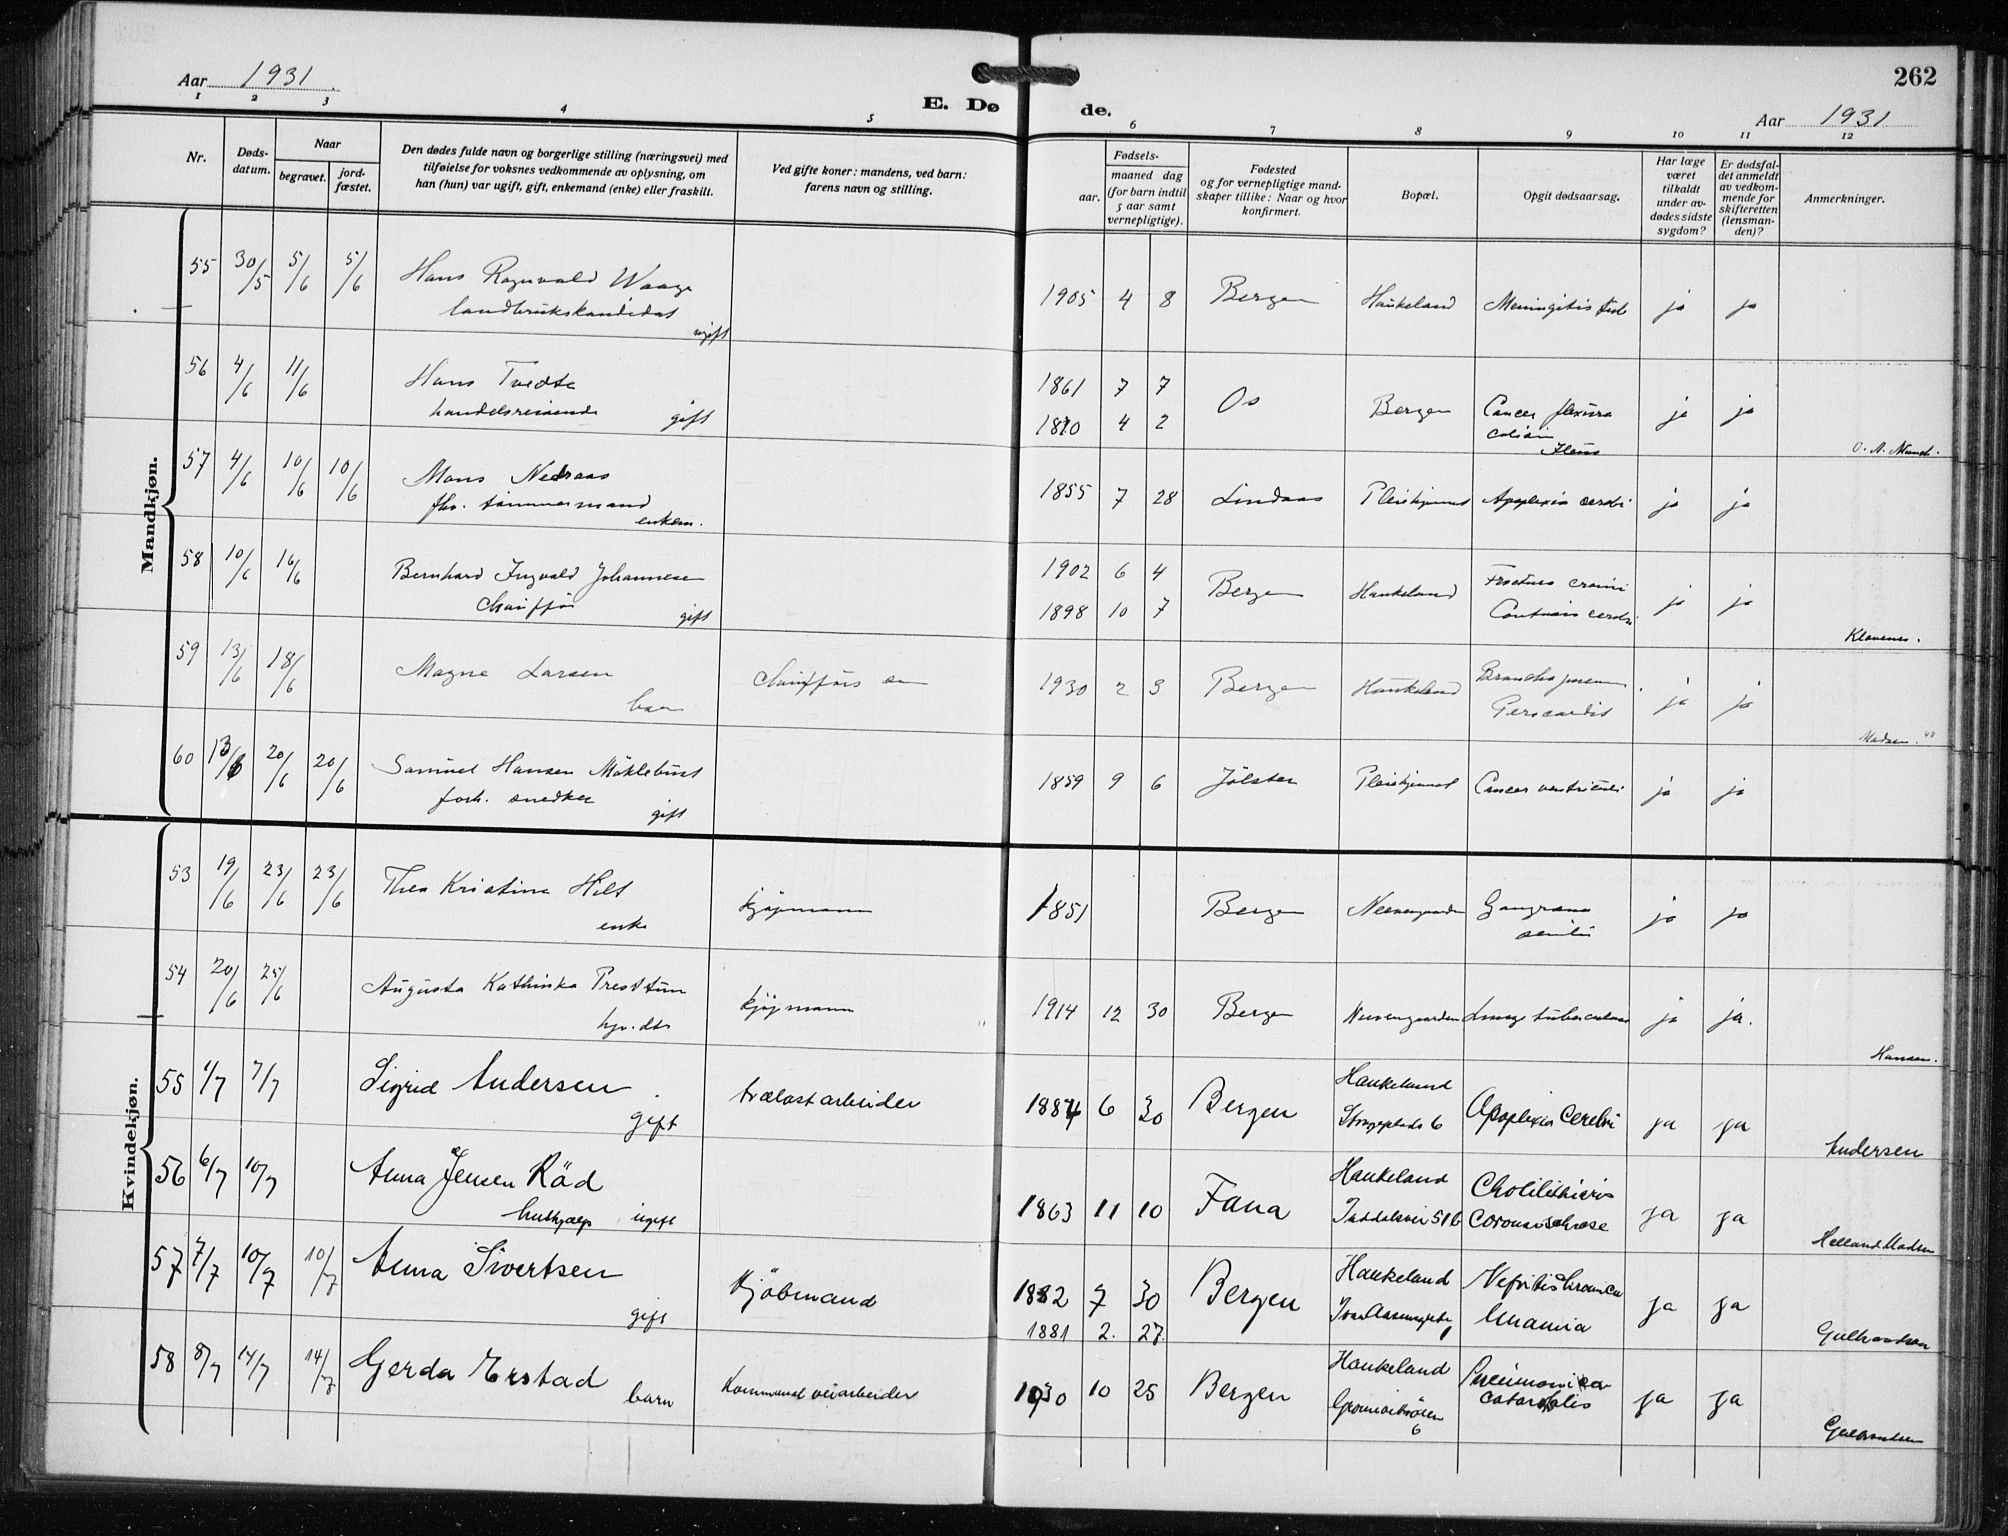 262
Aar 1931
E. Dø
de.
Aar 1931
1 2 3 4 5 6 7 8 9 10 11 12
Nr.
Døds-
datum.
Naar
begravet.
jord-
fæstet.
Den dødes fulde navn og borgerlige stilling (næringsvei) med
tilføielse for voksnes vedkommende av oplysning, om
han (hun) var ugift, gift, enkemand (enke) eller fraskilt.
Ved gifte koner: mandens, ved barn:
farens navn og stilling.
Fødsels-
aar.
maaned dag
(for barn indtil
5 aar samt
vernepligtige).
Fødested
og for vernepligtige mand-
skaper tillike: Naar og hvor
konfirmert.
Bopæl.
Opgit dødsaarsag.
Har læge
været
tilkaldt
under av-
dødes sidste
sygdom?
Er dødsfal-
det anmeldt
av vedkom-
mende for
skifteretten
(lensman-
den)?
Anmerkninger.
Mandkjøn.
55 30/5 5/6 5/6 Hans Ragnvald Waage 1905 4 8 Bergen Haukeland Meningitis ja ja
landbrukskandidat
ugift
56 4/6 11/6 Hans Tvedte 1861 7 7 Os Bergen Cancer flexura ja ja
handelsreisende gift 1810 4 2
Ileus
57 4/6 10/6 10/6 Mons Nedraas 1855 7 28 Lindaas Pleiehjemmet Apoplexia cerebri ja ja
fhv. tømmermand
enkem.
58 10/6 16/6 Bernhard Ingvald Johannesen 1902 6 4 Bergen Haukeland Fractura cranii ja ja
Chauffør gift 1898 10 7 Contusio cerebri
Klovenes.
59 13/6 18/6 Magne Larsen Chaufførs 1930 2 3 Bergen Haukeland ja ja
barn Pericardit
Madsen.
60 13/6 20/6 20/6 Samuel Hansen Møklebust 1859 9 6 Jølster Pleiehjemmet Cancer ventriculi ja ja
forh. snedker
gift
Kvindekjøn.
53 19/6 23/6 23/6 Thea Kristine Hilt kjøpmann 1851 Bergen Neevengaarden Gangræna ja ja
enke senilis
54 20/6 25/6 Augusta Kathinka Presttun kjøpmann 1914 12 30 Bergen Neevengaarden Lungetuberculose ja ja.
hjv. dtr.
Hansen.
55 1/7 7/7 Sigrid Andersen trælastarbeider 1884 6 30 Bergen Haukeland Apoplexia Cerebri ja ja
gift
Andersen
56 6/7 10/7 Anna Jensen Räd 1863 11 10 Fana Haukeland Cholilithiasis ja ja
hushjælp ugift 51b
Helland Madsen
57 7/7 10/7 10/7 Anna Sivertsen Kjøbmand 1882 7 30 Bergen Haukeland Nefritis chronica ja ja
gift 1881 2. 27. Ivar Aasensgate 1 Uraemia
58 8/7 14/7 14/7 Gerda Erstad Kommunal veiarbeider 1930 10 25 Bergen Haukeland Pneumonia ja ja
barn 6 catarrhalis